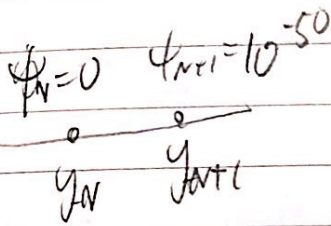 ψ_N=0 ψ_{N+1}=10^{-50}
y_N y_{N+1}